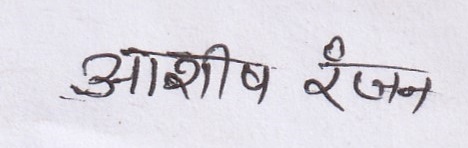 आशीष रंजन